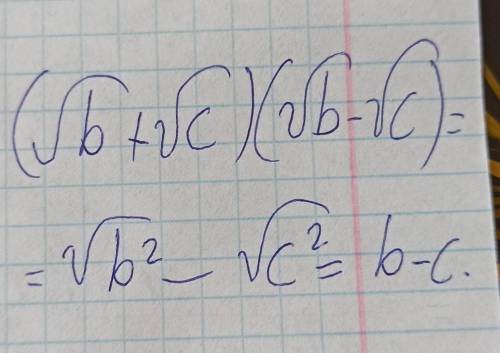 (√b + √c)(√b - √c) =
= √b² - √c² = b - c.